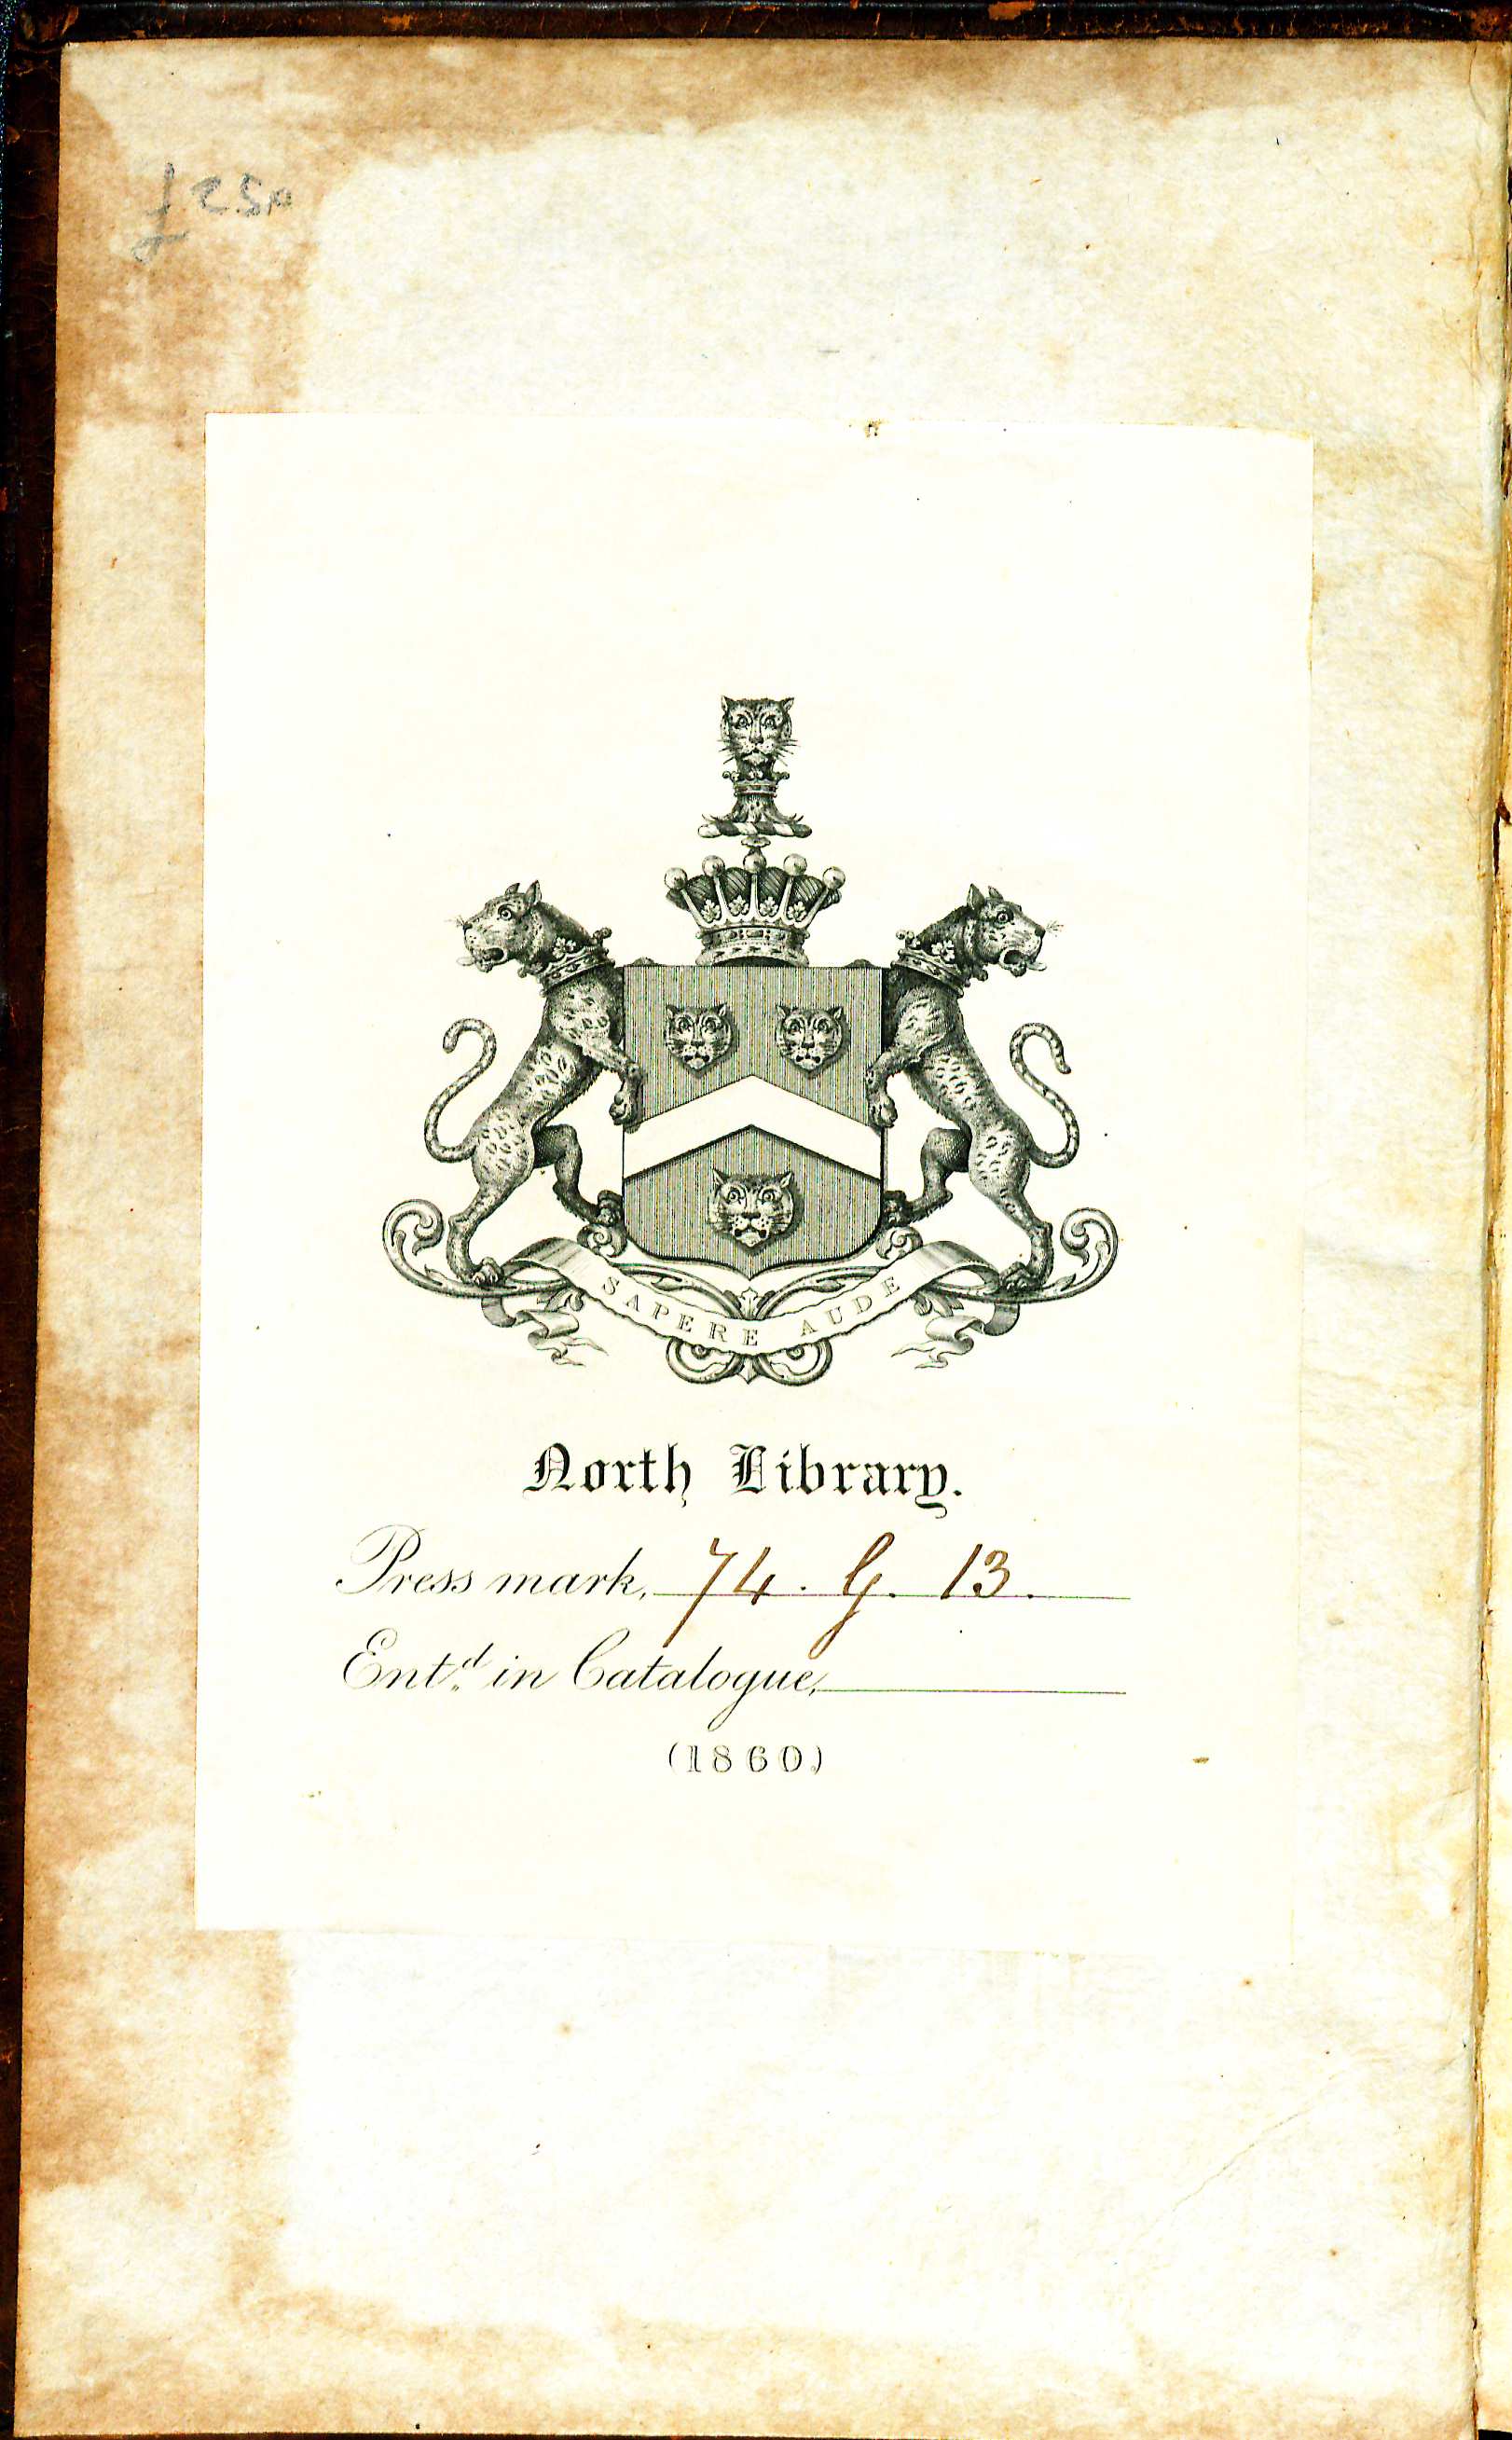 SAPERE AUDE
North Library.
Press mark, 74. G. 13.
Ent.d in Catalogue,
(1860)